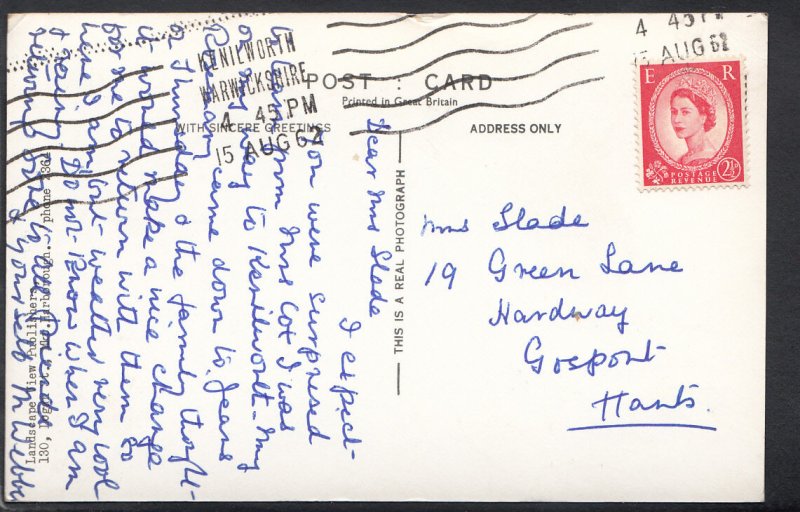 POST : CARD
Printed in Great Britain
WITH SINCERE GREETINGS
ADDRESS ONLY
KENILWORTH
WARWICKSHIRE
4 45 PM
15 AUG 62
4 45 PM
15 AUG 62
E R
POSTAGE
REVENUE
2½D
THIS IS A REAL PHOTOGRAPH
Dear Mrs Slade
I expect
you were surprised
to learn from Mrs Cox I was
on my way to Kenilworth - My
came down to Jeans
on Thursday & the family thought
it would make a nice change
for me to return with them so
here I am but weather very cool
& Don't know when I am
to all friends
& yourself M Webb
Landscape View Publishers
130, phone 2364
Mrs Slade
19 Green Lane
Hardway
Gosport
Hants.